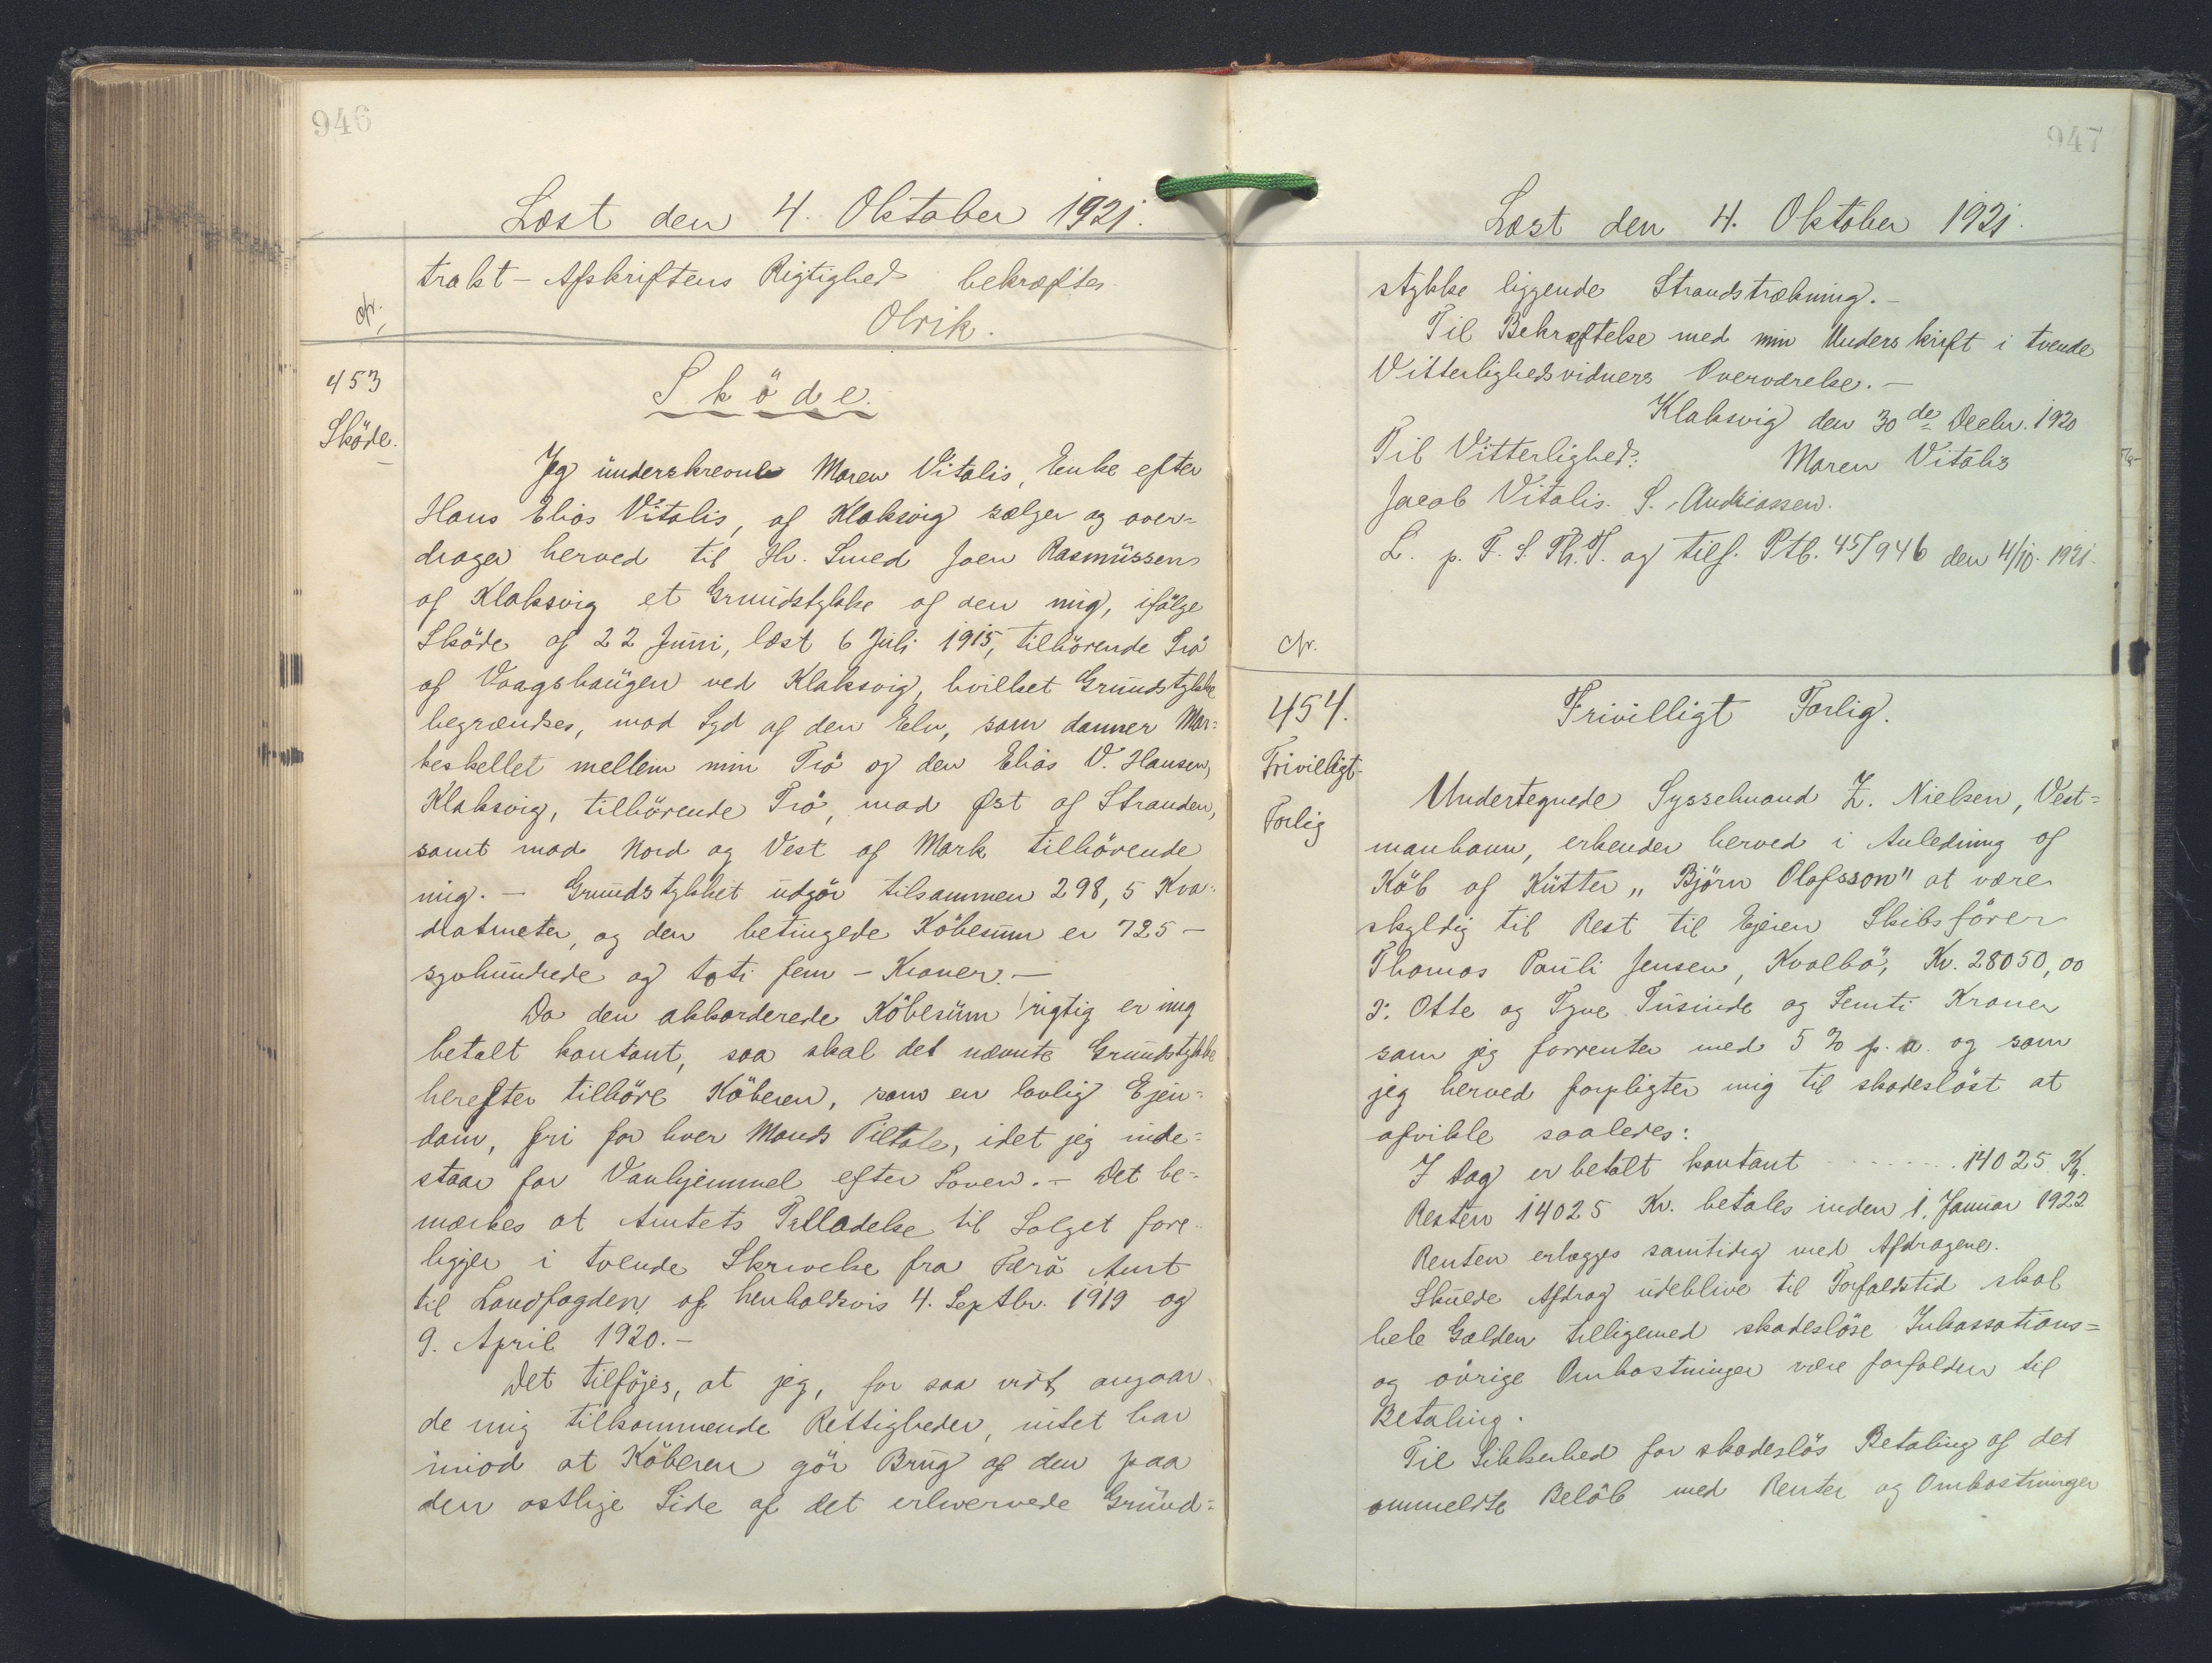 946
Læst den 4. Oktober 1921.
trakt - Afskriftens Rigtighed bekræftes
Olrik.
cfr.
453
Sköde.
Sköde.
Jeg underskrevne Maren Vitalis, Enke efter
Hans Elias Vitalis, af Klaksvig sælger og over=
drager herved til Hr. Smed Joen Rasmussen
af Klaksvig et Grundstykke af den mig, ifölge
Sköde af 22 Juni, læst 6 Juli 1915, tilhörende Trö
af Vaagshaugen ved Klaksvig, hvilket Grundstykke
begrændses, mod Syd af den Elv, som danner Mar=
keskellet mellem min Trö og den Elias V. Hansen,
Klaksvig, tilhörende Trö, mod Øst af Stranden,
samt mod Nord og Vest af Mark tilhörende
mig. - Grundstykket udgör tilsammen 298,5 Kva-
dratmeter, og den betingede Köbesum er 725 -
syvhundrede og tyti fem - Kroner. -
Da den akkorderede Köbesum rigtig er mig
betalt kontant, saa skal det nævnte Grundstykke
herefter tilhöre Köberen, som en lovlig Ejen=
dom, fri for hver Mands Tiltale, idet jeg inde=
staar for Vanhjemmel efter Loven. - Det be-
mærkes at Amtets Tilladelse til Salget fore-
ligger i tvende Skrivelse fra Færö Amt
til Landfogden af henholdsvis 4. Septbr. 1919 og
9. April 1920. -
Det tilföjes, at jeg, for saa vidt angaar
de mig tilkommende Rettigheder, intet har
imod at Köberen gör Brug af den paa
den østlige Side af det erhvervede Grund=
947
Læst den 4. Oktober 1921.
stykke liggende Strandstrækning. -
Til Bekræftelse med min Underskrift i tvende
Vitterlighedsvidners Overværelse. -
Klaksvig den 30de Decbr. 1920
Til Vitterlighed: Maren Vitalis
Jacob Vitalis. S. Andreassen.
L. p. F. S. Th. T. og tilf. Ptb. 45/946 den 4/10. 1921.
cfr.
454.
Frivilligt
Forlig
Frivilligt Forlig.
Undertegnede Sysselmand Z. Nielsen, Vest=
manhavn, erkender herved i Anledning af
Köb af Kutter "Björn Olafsson" at være
skyldig til Rest til Ejeren Skibsförer
Thomas Pauli Jensen, Kvalbö, Kr. 28050,00
ɔ: Otte og Tyve Tusinde og Femti Kroner
som jeg forrenter med 5 % p. a. og som
jeg herved forpligter mig til skadeslöst at
afvikle saaledes:
I Dag er betalt kontant ........ 14025 Kr.
Resten 14025 Kr. betales inden 1. Januar 1922
Renten erlægges samtidig med Afdragene.
Skulde Afdrag udeblive til Forfaldstid skal
hele Gælden tilligemed skadeslöse Inkassations=
og övrige Omkostninger være forfalden til
Betaling.
Til Sikkerhed for skadeslös Betaling af det
ommeldte Belöb med Renter og Omkostninger